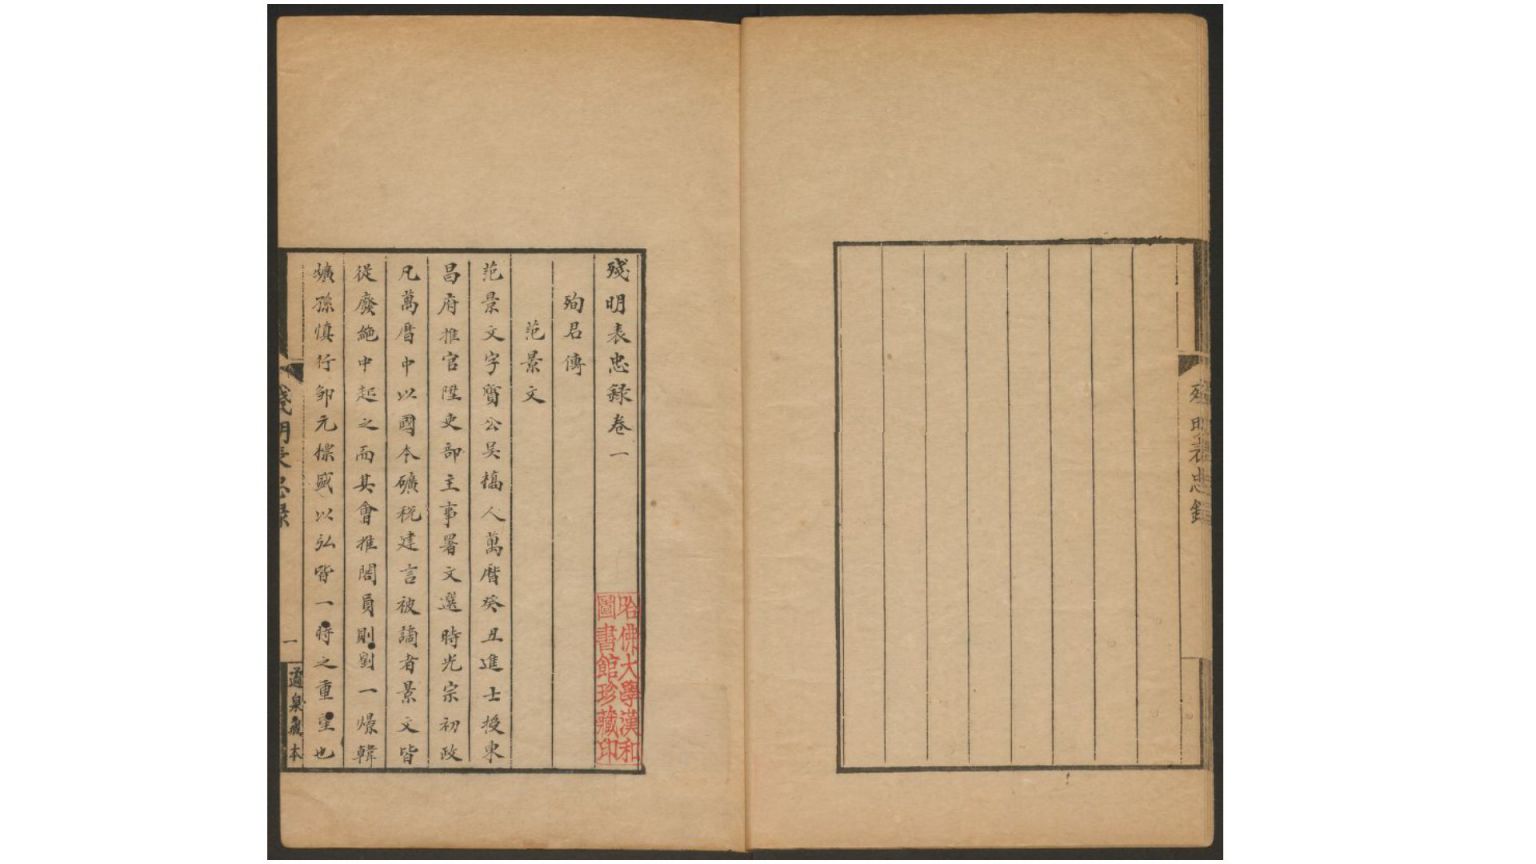 殘明表忠錄
殘明表忠録卷一
殉君傳
范景文
范景文字質公吴橋人萬曆癸丑進士授東
昌府推官陞吏部主事署文選時光宗初政
凡萬曆中以國本礦税建言被謫者景文皆
從廢絶中起之而其會推閣員則劉一燝韓
爌孫慎行鄒元標盛以弘皆一時之重望也
哈佛大學漢和
圖書館珍藏印
殘明表忠録
一
藏本